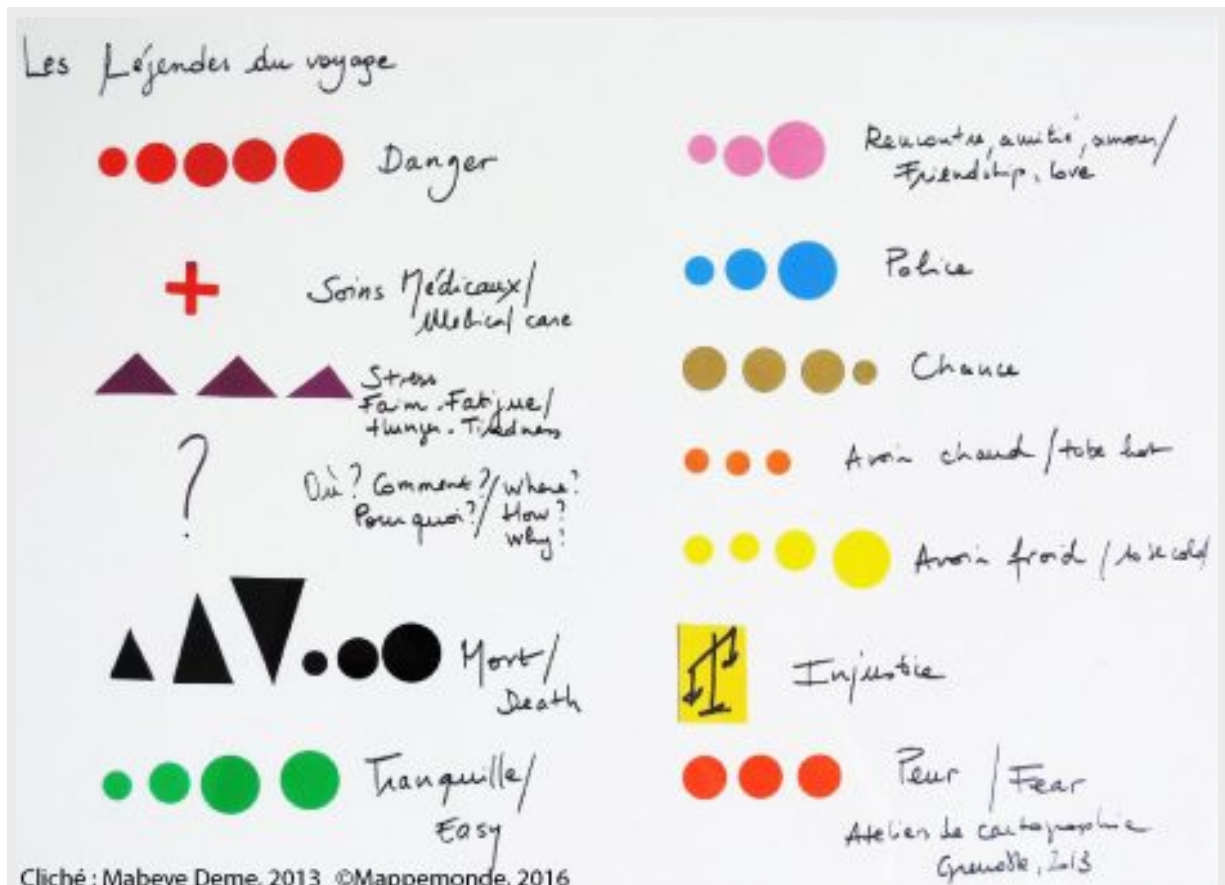 Les Léjendes du voyage
Danger
Soins Médicaux/
Medical care
Stress
Faim. Fatigue/
Hunger. Tiredness
?
Où? Comment?/where?
Pourquoi?/How?
why?
Mort/
Death
Tranquille/
Easy
Rencontre, amitié, amour/
Friendship, love
Police
Chance
Avoir chaud/to be hot
Avoir froid/to be cold/
Injustice
Peur / Fear
Atelier de cartographie
Grenoble, 2013
Cliché : Mabeye Deme, 2013 ©Mappemonde, 2016